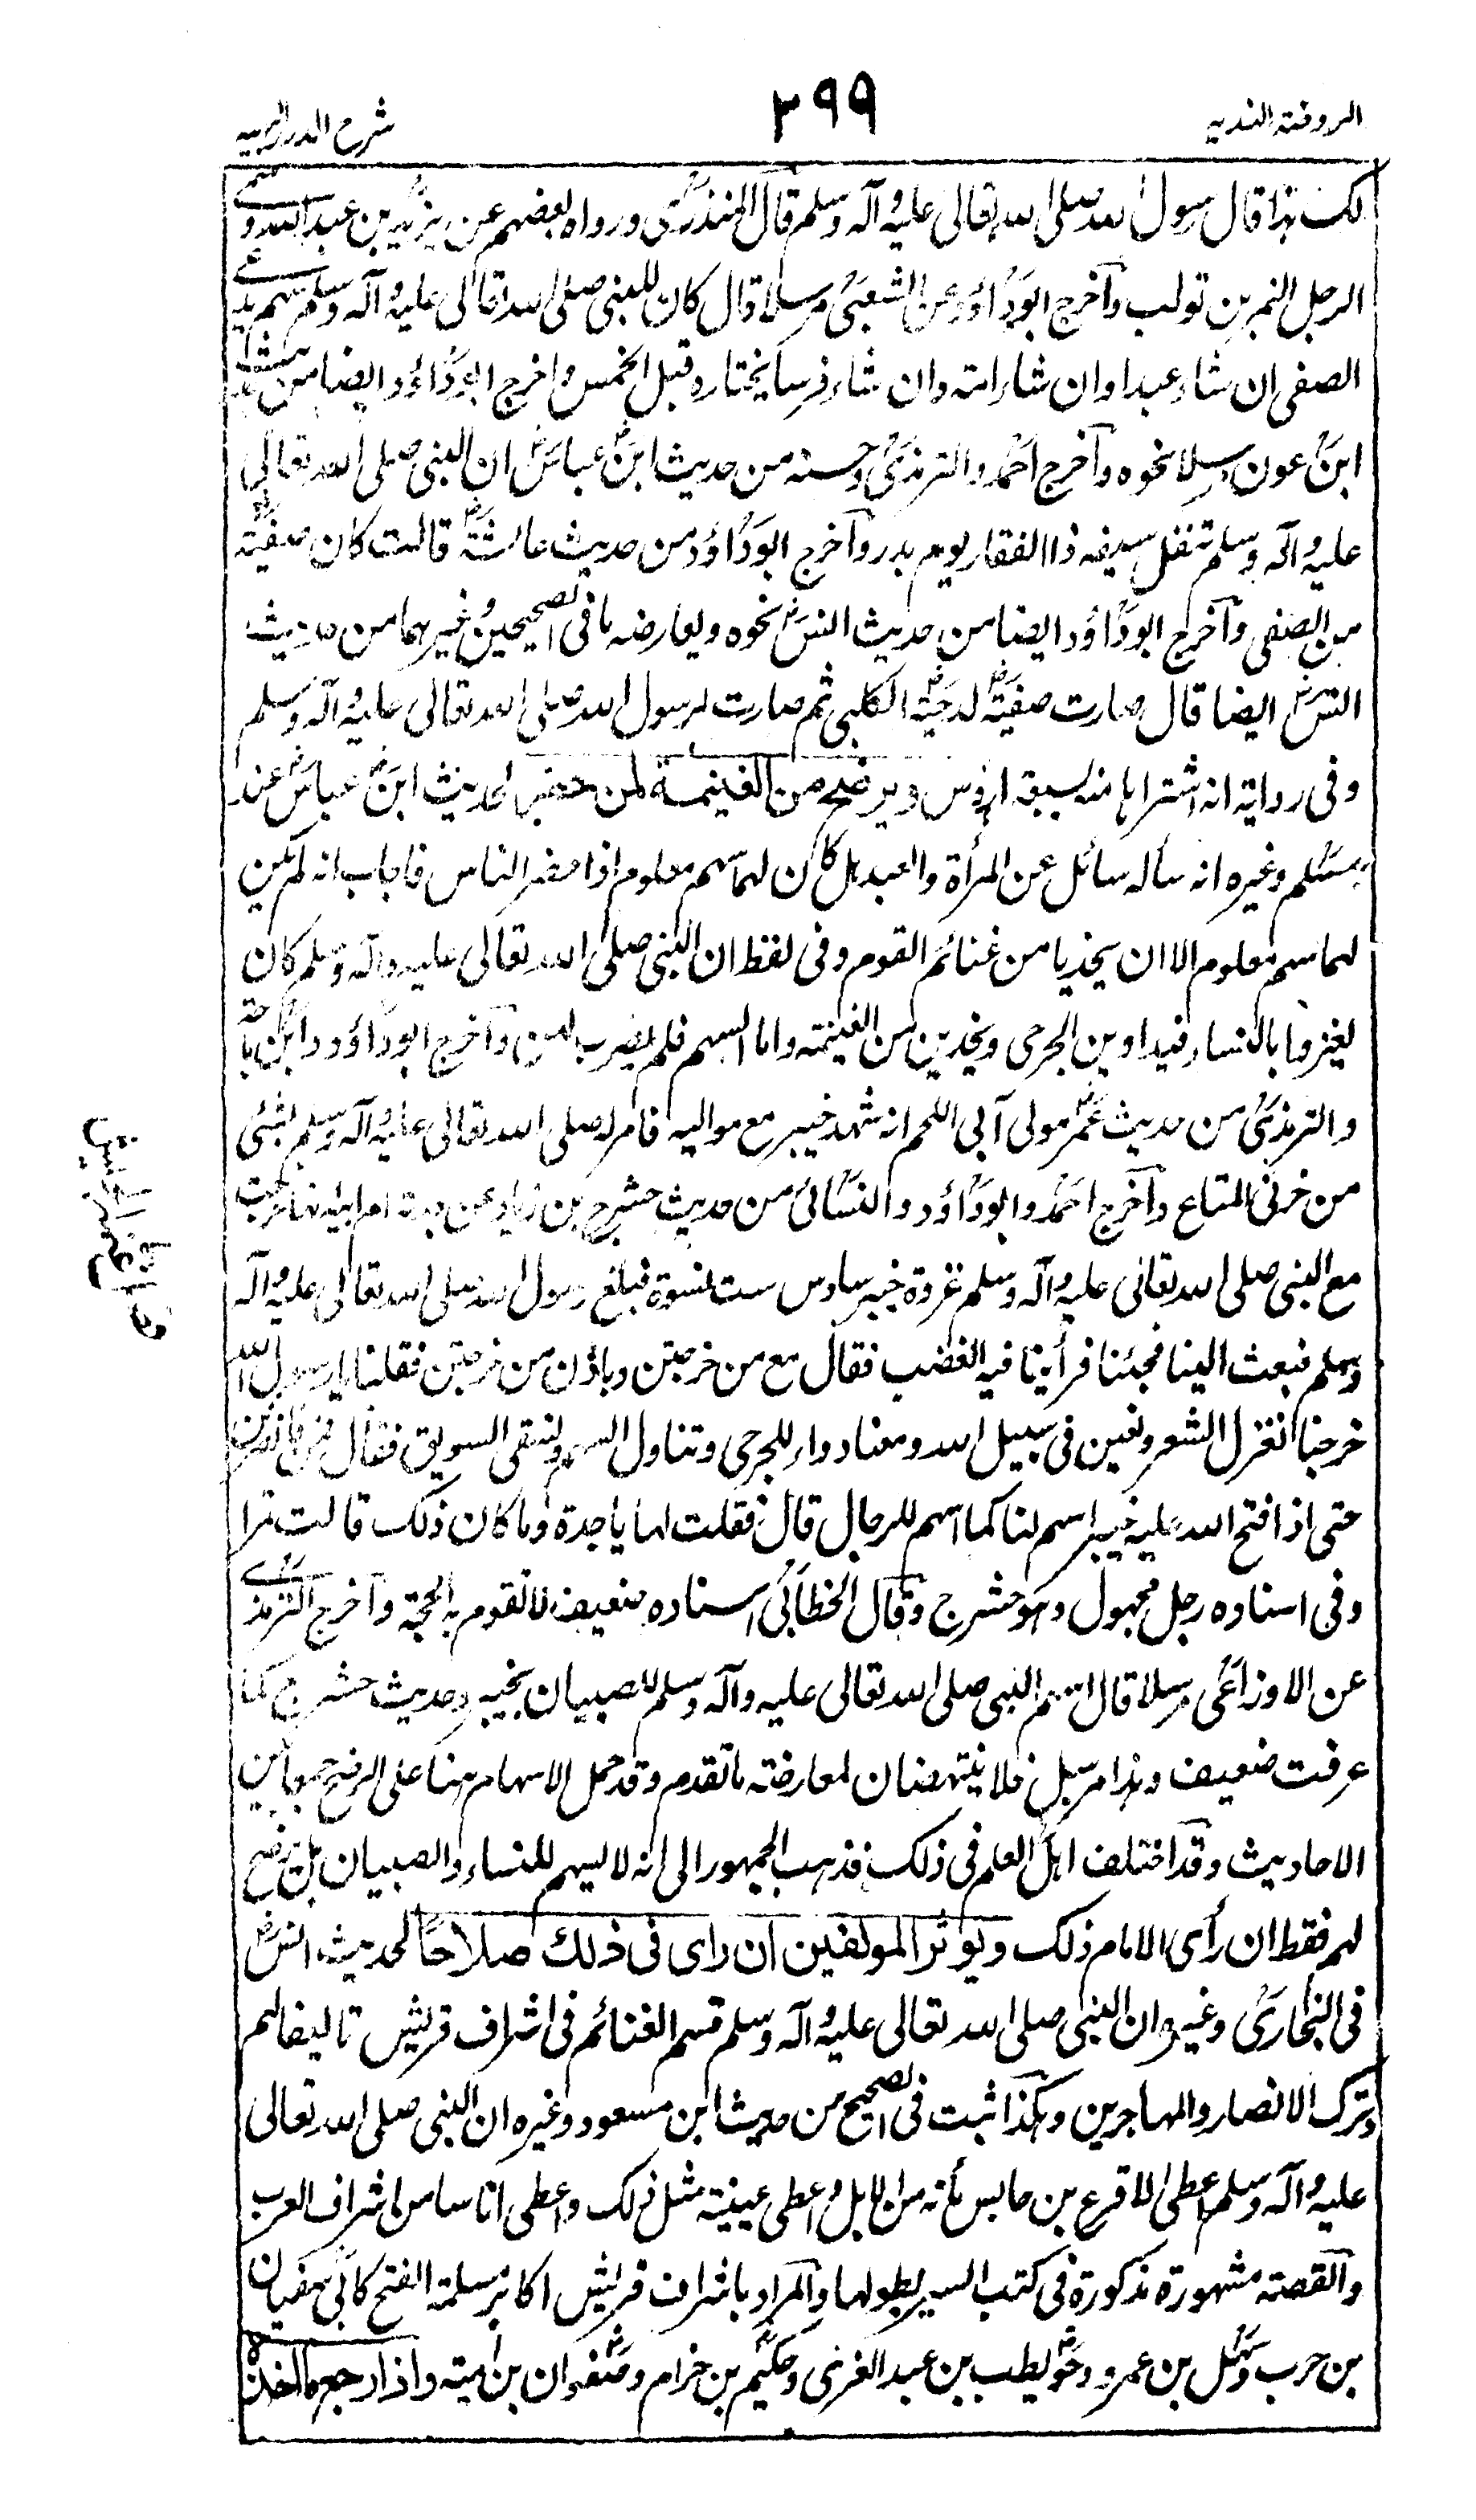 الروضة الندية
٣٩٩
شرح الدرر البهية
لك هذا قال رسول الله صلى الله تعالى عليه وآله وسلم قال المنذري ورواه بعضهم عن يزيد بن عبد الله وسمى
الرجل النمر بن تولب وأخرج ابوداؤد عن الشعبي مرسلا قال كان للنبي صلى الله تعالى عليه وآله وسلم سهم يدعى
الصفي ان شاء عبدا وان شاء امة وان شاء فرسا يختاره قبل الخمس واخرج ابوداؤد ايضا من حديث
ابن عون مرسلا نحوه وأخرج احمد والترمذي وحسنه من حديث ابن عباس ان النبي صلى الله تعالى
عليه وآله وسلم تنفل سيفه ذا الفقار يوم بدر وأخرج ابوداؤد من حديث عائشة قالت كان صفية
من الصفي وأخرج ابوداؤد ايضا من حديث انس نحوه ويعارضه ما في الصحيحين وغيرهما من حديث
انس ايضا قال صارت صفية لدحية الكلبي ثم صارت لرسول الله صلى الله تعالى عليه وآله وسلم
وفي رواية انه اشتراها منه بسبعة ارؤس ويرضخ من الغنيمة لمن حضر لحديث ابن عباس عند
مسلم وغيره انه سأله سائل عن المرأة والعبد هل كان لهما سهم معلوم اذا حضر الناس فاجاب انه لم يكن
لهما سهم معلوم الا ان يحذيا من غنائم القوم وفي لفظ ان النبي صلى الله تعالى عليه وآله وسلم كان
يغزو بالنساء فيداوين الجرحى ويحذين من الغنيمة واما السهم فلم يضرب لهن وأخرج ابوداؤد وابن ماجة
والترمذي من حديث عمير مولى آبي اللحم انه شهد خيبر مع مواليه فامر له صلى الله تعالى عليه وآله وسلم بشئ
من خرثي المتاع وأخرج احمد وابوداؤد والنسائي من حديث حشرج بن زياد عن جدته ام ابيه انها خرجت
مع النبي صلى الله تعالى عليه وآله وسلم غزوة خيبر سادس ست نسوة فبلغ رسول الله صلى الله تعالى عليه وآله
وسلم فبعث الينا فجئنا فرأينا فيه الغضب فقال مع من خرجتن وباذن من خرجتن فقلنا يا رسول الله
خرجنا نغزل الشعر ونعين في سبيل الله ومعنا دواء للجرحى ونناول السهم ونسقي السويق فقال قمن فانصرفن
حتى اذا فتح الله عليه خيبر اسهم لنا كما اسهم للرجال قال فقلت لها يا جدة وما كان ذلك قالت تمرا
وفي اسناده رجل مجهول وهو حشرج وقال الخطابي اسناده ضعيف لا تقوم به الحجة وأخرج الترمذي
عن الاوزاعي مرسلا قال اسهم النبي صلى الله تعالى عليه وآله وسلم للصبيان بخيبر وحديث حشرج كما
عرفت ضعيف وهذا مرسل فلا ينتهضان لمعارضة ما تقدم وقد حمل الاسهام هنا على الرضخ جمعا بين
الاحاديث وقد اختلف اهل العلم في ذلك فذهب الجمهور الى انه لا يسهم للنساء والصبيان بل يرضخ
لهم فقط ان رأى الامام ذلك ويوثر المولفين ان راى في ذلك صلاحا لحديث انس
في البخاري وغيره ان النبي صلى الله تعالى عليه وآله وسلم قسم الغنائم في اشراف قريش تاليفا لهم
وترك الانصار والمهاجرين وهكذا ثبت في الصحيح من حديث ابن مسعود وغيره ان النبي صلى الله تعالى
عليه وآله وسلم اعطى الاقرع بن حابس مأة من الابل واعطى عيينة مثل ذلك واعطى اناسا من اشراف العرب
والقصة مشهورة مذكورة في كتب السير بطولها والمراد باشراف قريش اكابر مسلمة الفتح كابي سفيان
بن حرب وسهل بن عمرو وحويطب بن عبد العزى وحكيم بن حزام وصفوان بن امية واذا رجع ما اخذه